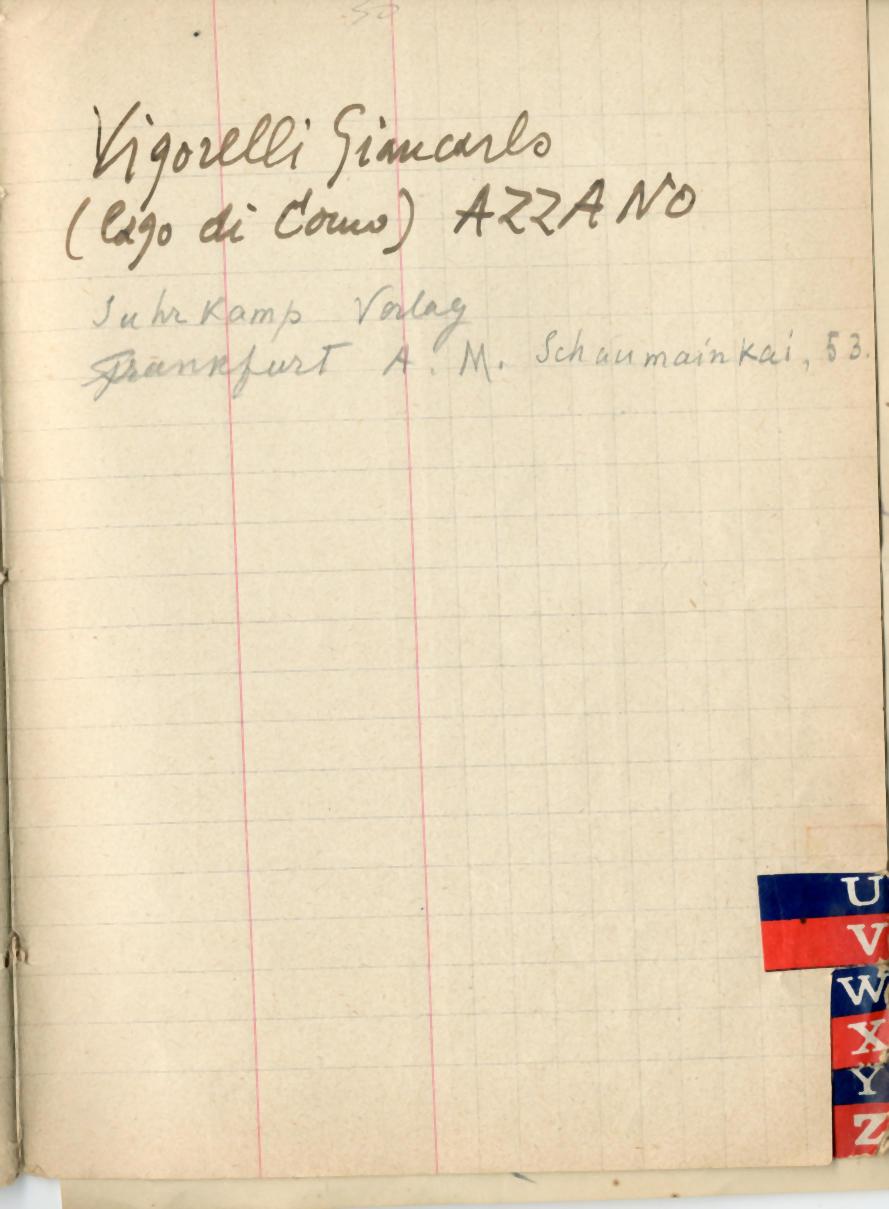 50
Vigorelli Giancarlo
(lago di Como) AZZANO
Suhrkamp Verlag
Frankfurt A. M. Schaumainkai, 53.
U
V
W
X
Y
Z